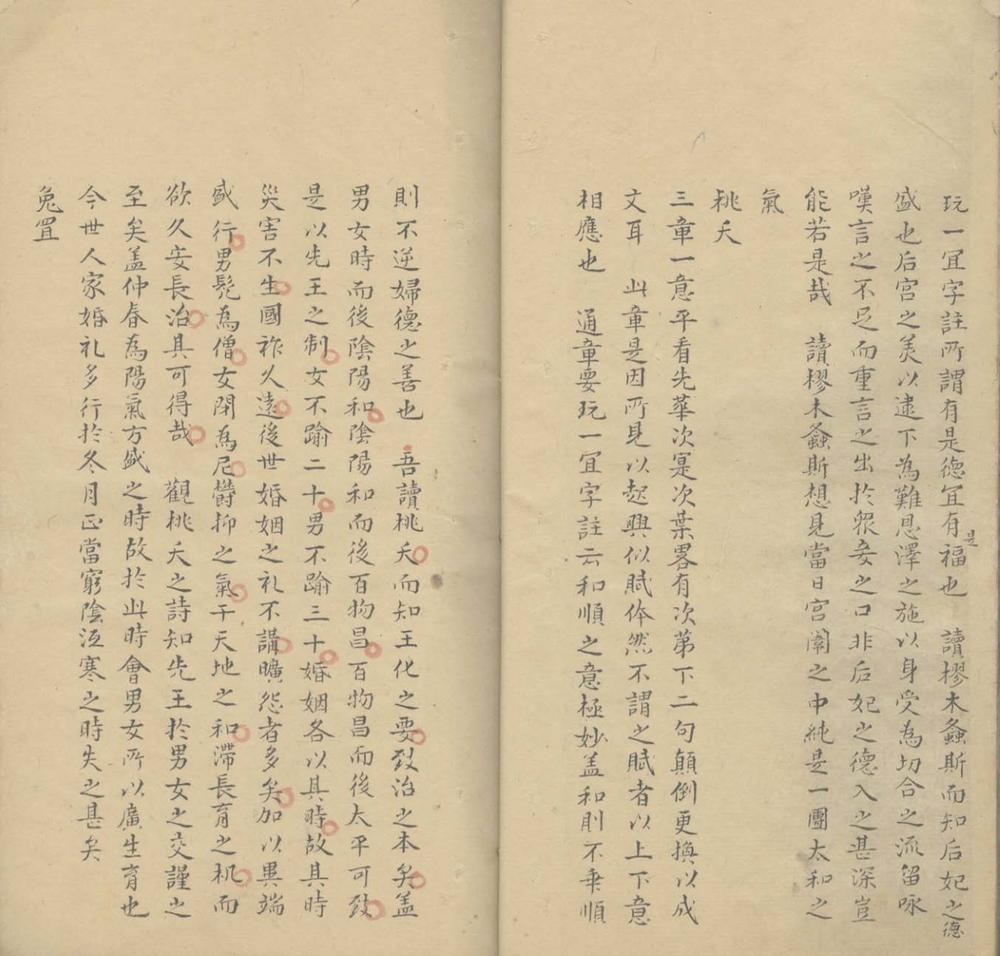 玩一冝字註所謂有是德冝有是福也　讀樛木螽斯而知后妃之德
盛也后宫之美以逮下為難恩澤之施以身受為切合之流留咏
嘆言之不足而重言之出於衆妾之口非后妃之德入之甚深豈
能若是哉　讀樛木螽斯想見當日宫闈之中純是一團太和之
氣
桃夭
三章一意平看先華次寔次葉畧有次第下二句顛倒更換以成
文耳　此章是因所見以起興似賦体然不謂之賦者以上下意
相應也　通章要玩一冝字註云和順之意極妙盖和則不乗順
則不逆婦德之善也　吾讀桃夭而知王化之要致治之本矣盖
男女時而後陰陽和陰陽和而後百物昌百物昌而後太平可致
是以先王之制女不踰二十男不踰三十婚姻各以其時故其時
災害不生國祚久遠後世婚姻之礼不講曠怨者多矣加以異端
盛行男髠為僧女閉為尼欝抑之氣干天地之和滯長育之机而
欲久安長治其可得哉　觀桃夭之詩知先王於男女之交謹之
至矣盖仲春為陽氣方盛之時故於此時會男女所以廣生育也
今世人家婚礼多行於冬月正當窮陰沍寒之時失之甚矣
兔罝